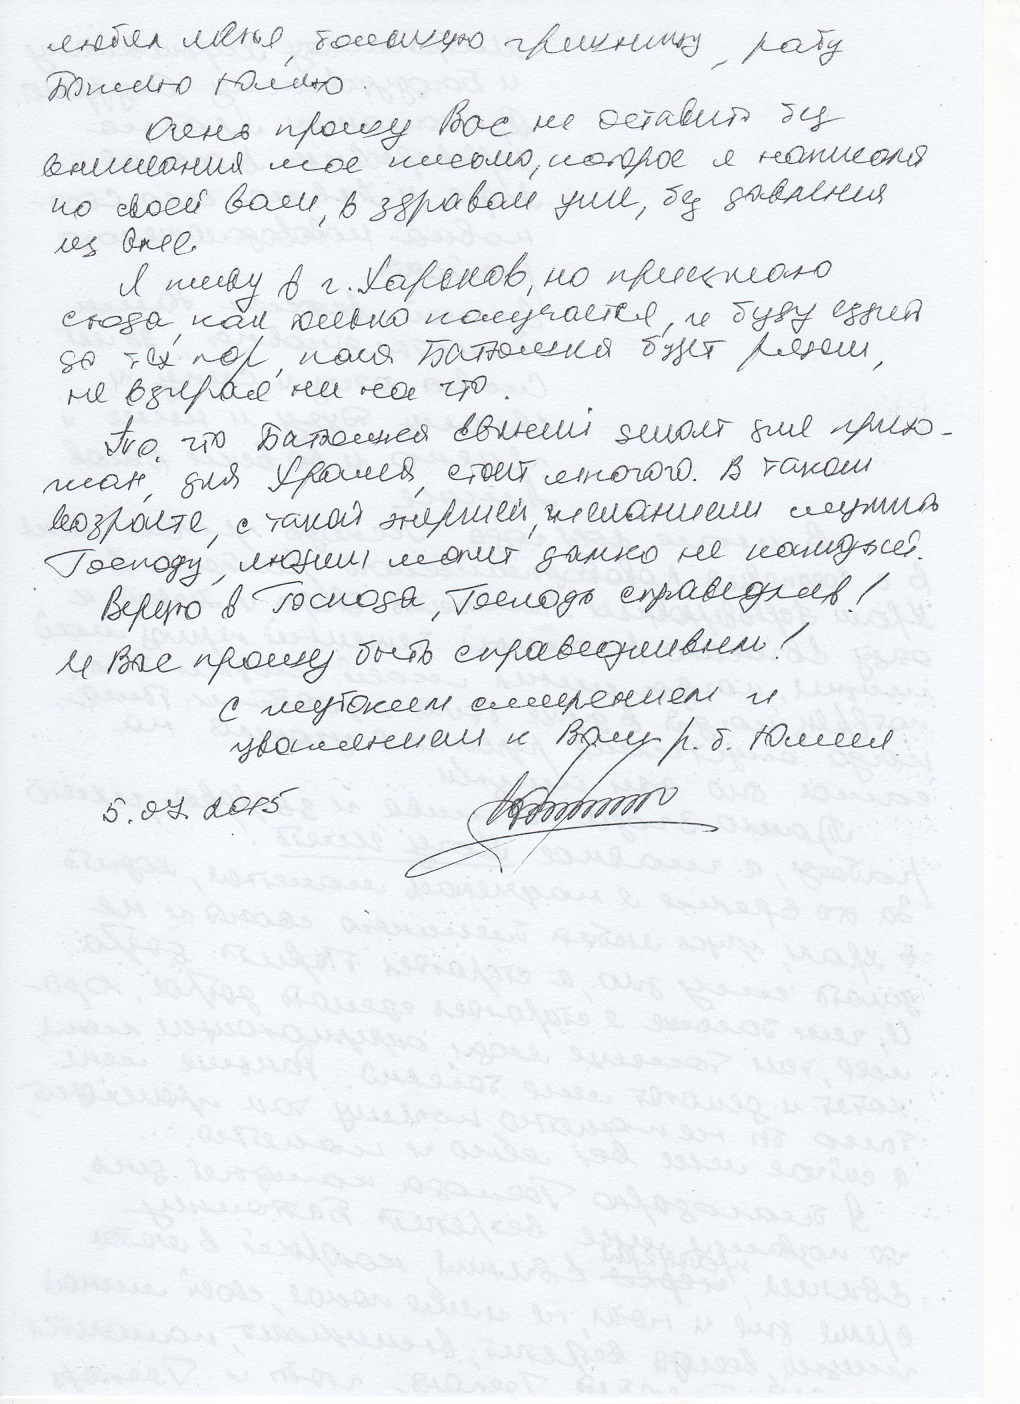 любил меня, большую грешницу, рабу
Божию Юлию.
Очень прошу Вас не оставить без
внимания мое письмо, которое я написала
по своей воли, в здравом уме, без давления
из вне.
Я живу в г. Харьков, но приезжаю
сюда, как только получается, и буду ездить
до тех пор, пока Батюшка будет рядом,
не взирая ни на что.
То, что Батюшка Евгений делает для прихо-
жан, для Храма, стоит многого. В таком
возрасте, с такой энергией, желанием служить
Господу, людям может далко не каждый.
Верую в Господа, Господь справедлив!
И Вас прошу быть справедливым!
С глубоким смирением и
уважением к Вам р. б. Юлия
5.07.2015